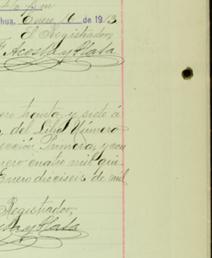 hua, Enero 16 de 1913
El Registrador
Acosta y Plata
ero treinta y siete á
del Libro Número
ección Primera, y con
mero cuatro mil qui
Enero dieciseis de mil
Registrador,
Plata